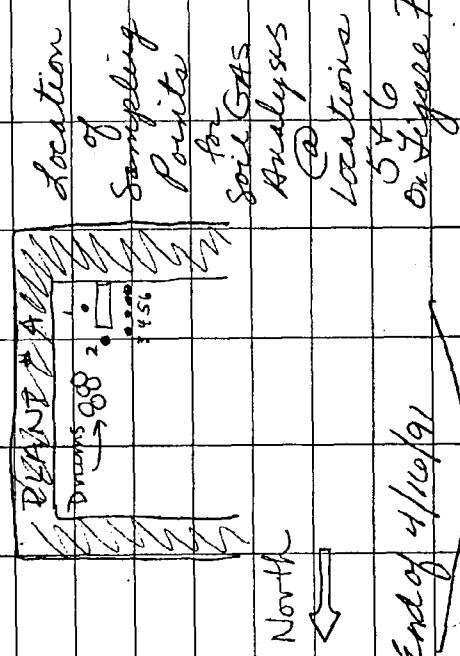 Location
of
Sampling
Points
for
Soil GAS
Analysis
@
Locations
5 & 6
On Figure 7
PLANT # A
Drums
1
2
3 4 5 6
North
End of 4/16/91